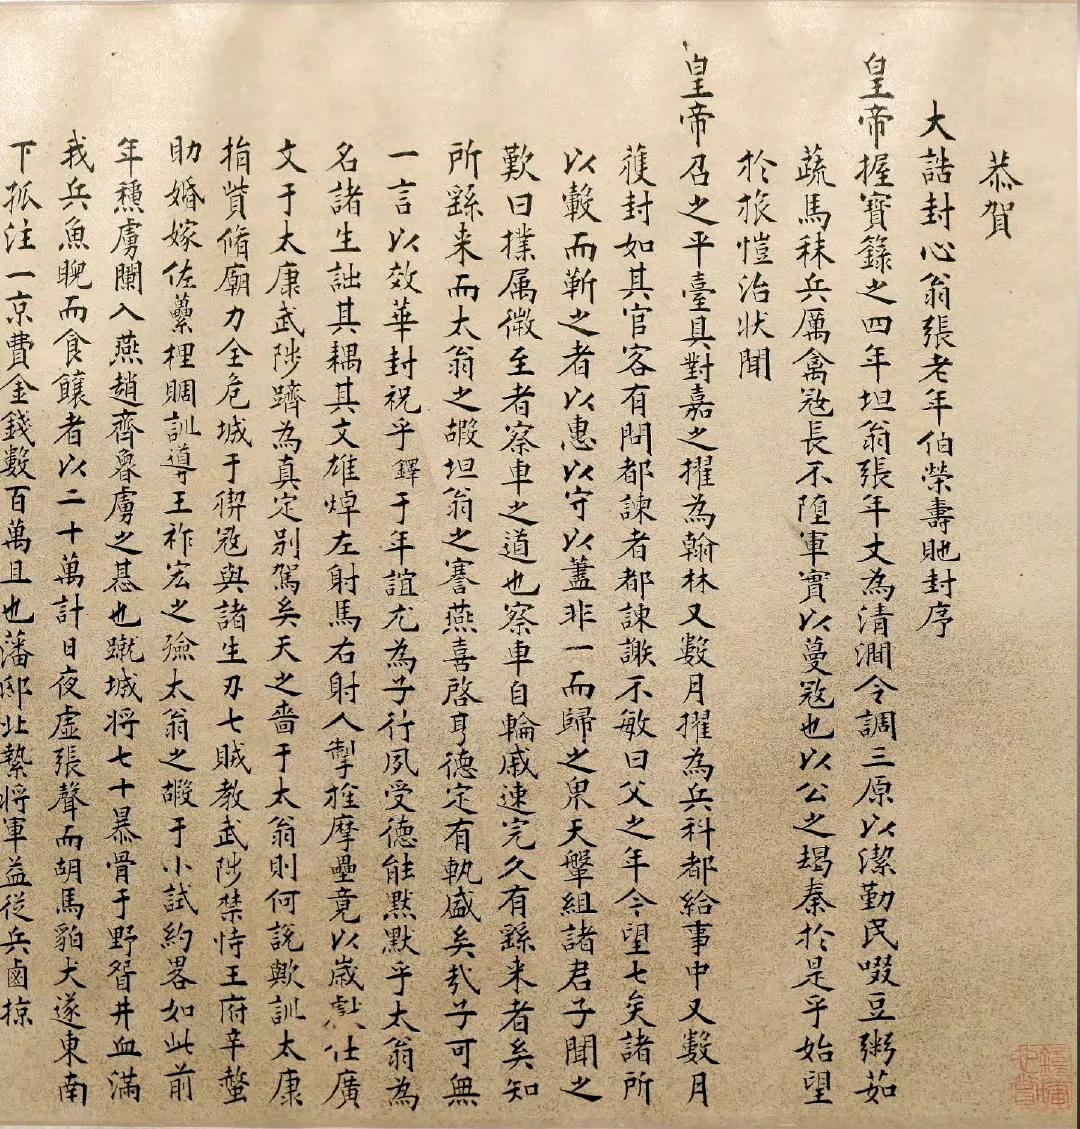 恭賀
大誥封心翁張老年伯榮壽貤封序
皇帝握寶籙之四年坦翁張年丈為清澗令調三原以潔勤民啜豆粥茹
蔬馬秣兵厲禽寇長不墮軍實以蔓寇也以公之朅秦於是乎始望
於旅愷治狀聞
皇帝召之平臺具對嘉之擢為翰林又數月擢為兵科都給事中又數月
獲封如其官客有問都諫者都諫謝不敏曰父之年今望七矣諸所
以轂而靳之者以惠以守以藎非一而歸之果天聲組諸君子聞之
歎曰撲属微至者察車之道也察車自輪戚速完久有繇来者矣知
所繇来而太翁之嘏坦翁之謇燕喜啓亨德定有執盛矣哉子可無
一言以效華封祝乎鐸于年誼尤為子行夙受德能默默乎太翁為
名諸生詘其耦其文雄焯左射馬右射人掣拴摩壘竟以歲獻仕廣
文于太康武陟躋為真定别駕矣天之嗇于太翁則何説歟訓太康
捐貲脩廟力全危城于禦寇與諸生刃七賊教武陟禁恃王府辛螫
助婚嫁佐虆梩賙訓導王祚宏之殮太翁之嘏于小試約畧如此前
年穗虜闌入燕趙齊魯虜之惎也蹴城将七十暴骨于野眢井血滿
我兵魚睨而食饟者以二十萬計日夜虛張聲而胡馬貃犬遂東南
下孤注一京費金錢数百萬且也藩邸北縶将軍益從兵鹵掠